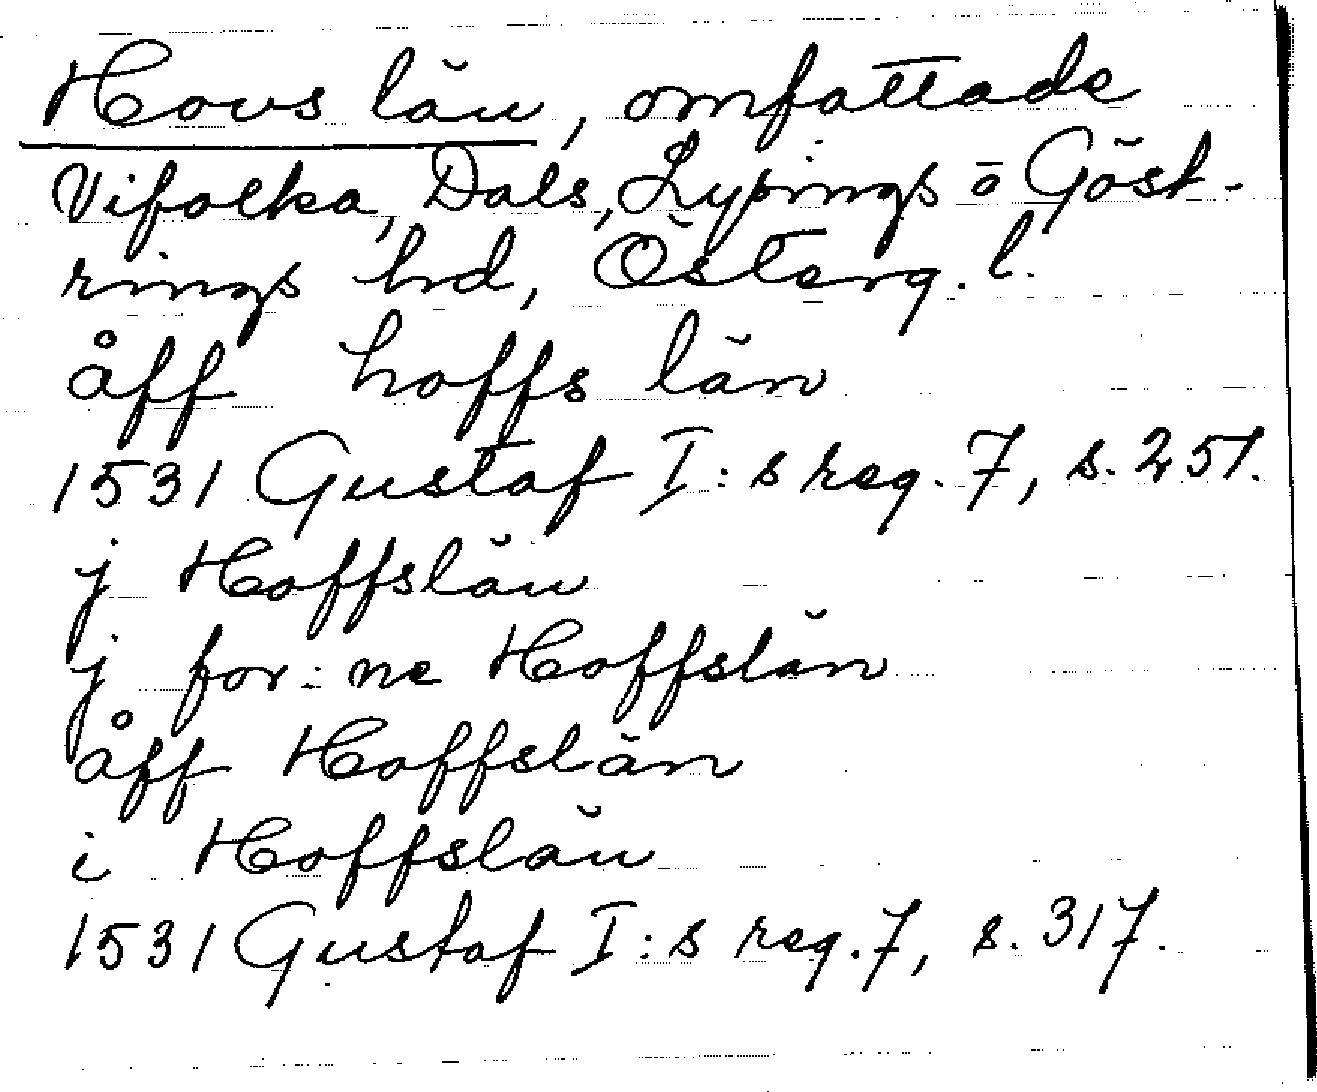 Hovs län, omfattade
Vifolka, Dals, Lysings o Göst-
rings hd, Österg. l.
åff hoffs län
1531 Gustaf I:s reg. 7, s. 251.
j Hoffslän
j for:ne Hoffslän
åff Hoffslän
i Hoffslän
1531 Gustaf I:s reg. 7, s. 317.